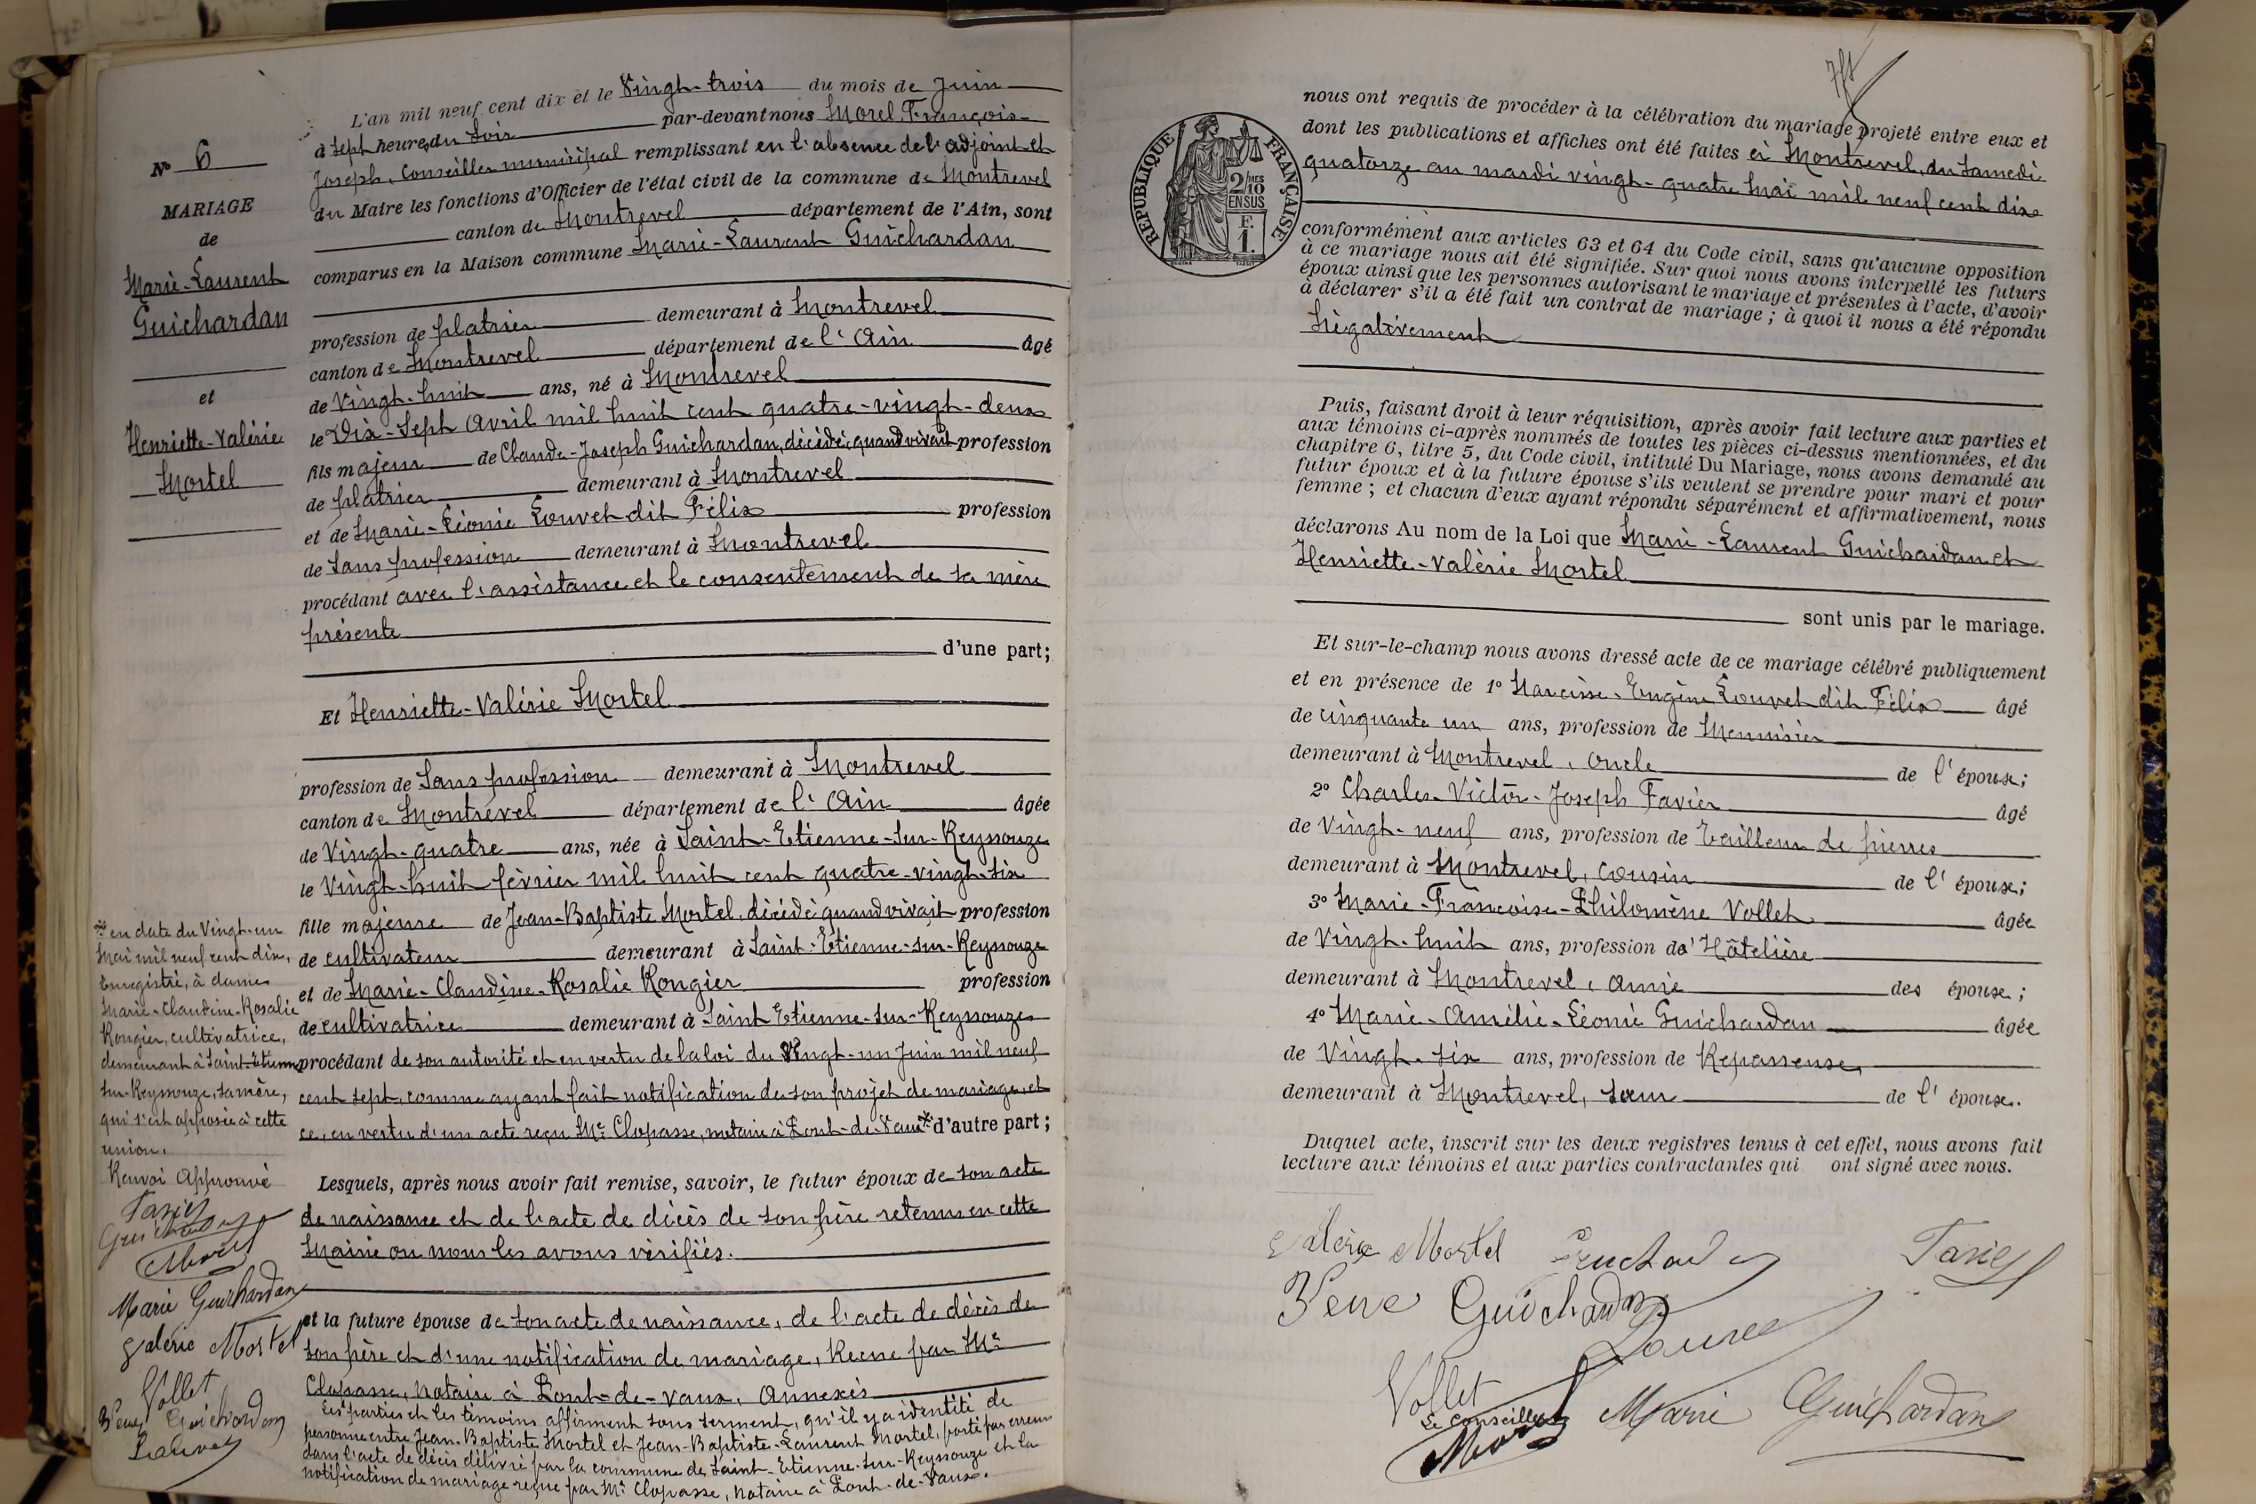 N° 6
MARIAGE
de
Marie-Laurent
Guichardan
et
Henriette-Valérie
Mortel
L'an mil neuf cent dix et le Vingt-trois du mois de Juin
à sept heures du soir par-devant nous Morel François-
Joseph, Conseiller municipal remplissant en l'absence de l'adjoint et
du Maire les fonctions d'Officier de l'état civil de la commune de Montrevel
canton de Montrevel département de l'Ain, sont
comparus en la Maison commune Marie-Laurent Guichardan
profession de platrier demeurant à Montrevel
canton de Montrevel département de l'Ain âgé
de Vingt-huit ans, né à Montrevel
le Dix-sept Avril mil huit cent quatre-vingt-deux
fils majeur de Claude-Joseph Guichardan, décédé, quand vivait profession
de platrier demeurant à Montrevel
et de Marie-Léonie Louvet dit Félix profession
de Sans profession demeurant à Montrevel
procédant avec l'assistance et le consentement de sa mère
présente
d'une part;
Et Henriette-Valérie Mortel
profession de Sans profession demeurant à Montrevel
canton de Montrevel département de l'Ain âgée
de Vingt-quatre ans, née à Saint-Etienne-sur-Reyssouze
le Vingt-huit février mil huit cent quatre-vingt-six
fille majeure de Jean-Baptiste Mortel, décédé quand vivait profession
de cultivateur demeurant à Saint-Etienne-sur-Reyssouze
et de Marie-Claudine-Rosalie Rongier profession
de cultivatrice demeurant à Saint Etienne-sur-Reyssouze
procédant de son autorité et en vertu de la loi du Vingt-un Juin mil neuf
cent sept, comme ayant fait notification de son projet de mariage, et
ce, en vertu d'un acte reçu Me Clopasse, notaire à Pont-de-Vaux d'autre part;
en date du Vingt-un
Mai mil neuf cent dix,
Enregistré, à dame
Marie-Claudine-Rosalie
Rongier, cultivatrice,
demeurant à Saint-Etienne
sur-Reyssouze, sa mère,
qui s'est opposée à cette
union.
Renvoi Approuvé
Favier
Guichardan
Morel
Marie Guichardan
Valérie Mortel
Vollet
Veuve Guichardan
Louvet
Lesquels, après nous avoir fait remise, savoir, le futur époux de son acte
de naissance et de l'acte de décès de son père retenus en cette
Mairie ou nous les avons vérifiés.
et la future épouse de son acte de naissance, de l'acte de décès de
son père et d'une notification de mariage, Recue par Me
Clopasse, Notaire à Pont-de-Vaux, Annexés
Les parties et les témoins affirment sous serment, qu'il y a identité de
personne entre Jean-Baptiste Mortel et Jean-Baptiste-Laurent Mortel, porté par erreur
dans l'acte de décès délivré par la commune de Saint-Etienne-sur-Reyssouze et la
notification de mariage reçue par Me Clopasse, Notaire à Pont-de-Vaux.
RÉPUBLIQUE FRANÇAISE
2/10 MES
EN SUS
F.
1.
nous ont requis de procéder à la célébration du mariage projeté entre eux et
dont les publications et affiches ont été faites à Montrevel, du Samedi
quatorze au mardi vingt-quatre Mai mil neuf cent dix
conformément aux articles 63 et 64 du Code civil, sans qu'aucune opposition
à ce mariage nous ait été signifiée. Sur quoi nous avons interpellé les futurs
époux ainsi que les personnes autorisant le mariage et présentes à l'acte, d'avoir
à déclarer s'il a été fait un contrat de mariage; à quoi il nous a été répondu
Négativement
Puis, faisant droit à leur réquisition, après avoir fait lecture aux parties et
aux témoins ci-après nommés de toutes les pièces ci-dessus mentionnées, et du
chapitre 6, titre 5, du Code civil, intitulé Du Mariage, nous avons demandé au
futur époux et à la future épouse s'ils veulent se prendre pour mari et pour
femme; et chacun d'eux ayant répondu séparément et affirmativement, nous
déclarons Au nom de la Loi que Marie-Laurent Guichardan et
Henriette-Valérie Mortel
sont unis par le mariage.
Et sur-le-champ nous avons dressé acte de ce mariage célébré publiquement
et en présence de 1° Narcisse-Eugène Louvet dit Félix âgé
de cinquante un ans, profession de Menuisier
demeurant à Montrevel, oncle de l'époux;
2° Charles-Victor-Joseph Favier âgé
de Vingt-neuf ans, profession de Tailleur de pierres
demeurant à Montrevel, cousin de l'époux;
3° Marie-Françoise-Philomène Vollet âgée
de Vingt-huit ans, profession d'Hôtelière
demeurant à Montrevel, amie des époux;
4° Marie-Amélie-Léonie Guichardan âgée
de Vingt-six ans, profession de Repasseuse,
demeurant à Montrevel, sœur de l'époux.
Duquel acte, inscrit sur les deux registres tenus à cet effet, nous avons fait
lecture aux témoins et aux parties contractantes qui ont signé avec nous.
Valérie Mortel Guichardan Favier
Veuve Guichardan
Louvet
Vollet
Le Conseiller
Morel
Marie Guichardan